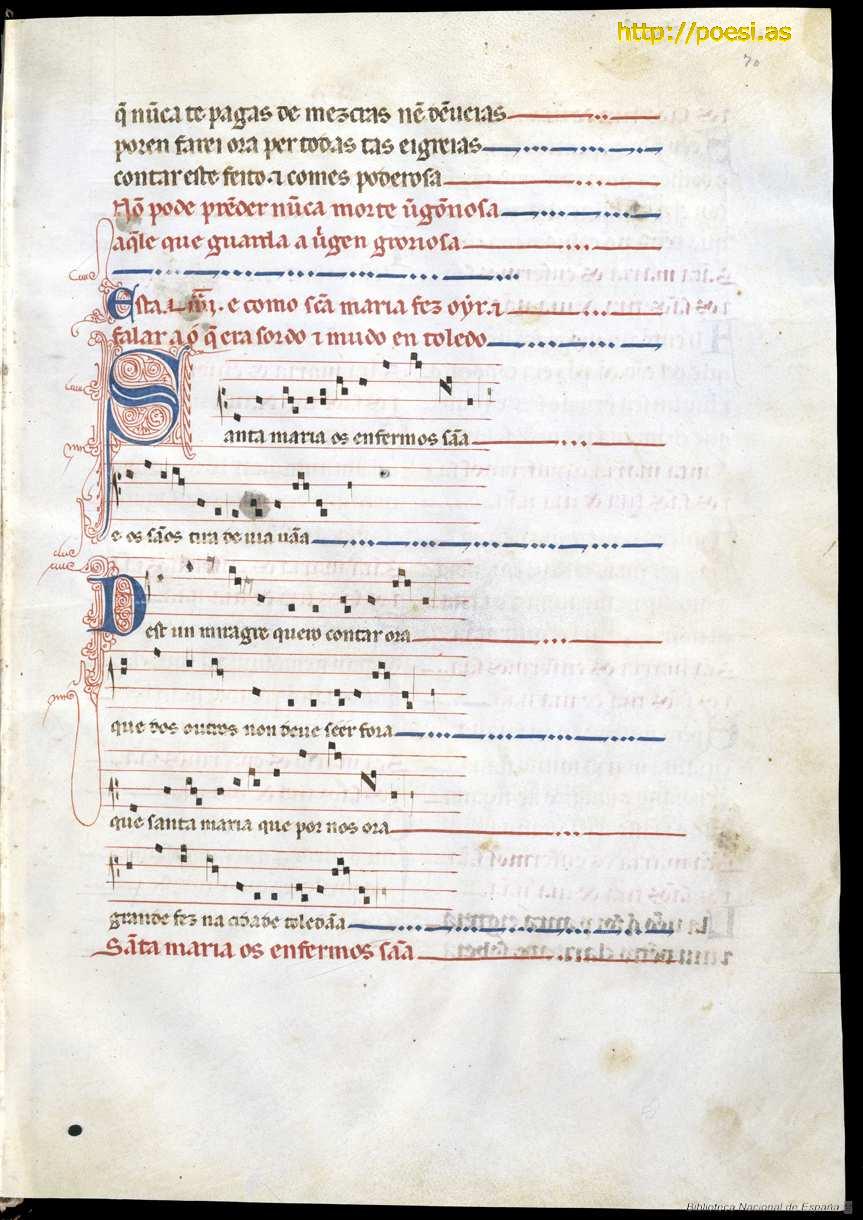 http://poesi.as
70
q̃ nũca te pagas de mezcras nẽ dẽueias
poren farei ora per todas tas eigreias
contar este feito ⁊ comes poderosa
Nõ pode prẽder nũca morte ṽgõnosa
aq̃le que guarda a ṽgen gloriosa
Esta .L.VIII. e como scã maria fez oyr. ⁊
falar a ó q̃ era sordo ⁊ mudo en toledo
Santa maria os enfermos sãa
e os sãos tira de uia uãa
Dest un miragre quero contar ora
que dos outros non deue seer fora
que santa maria que por nos ora
grande fez na cidade toledãa
Sãta maria os enfermos sãa
Biblioteca Nacional de España